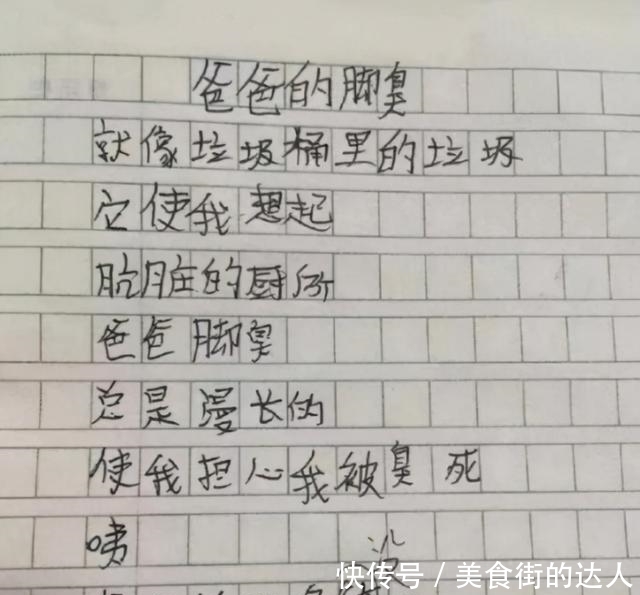 爸爸的脚臭
就像垃圾桶里的垃圾
它使我想起
肮脏的厨所
爸爸脚臭
总是漫长的
使我担心我被臭死
咦
快传号 / 美食街的达人